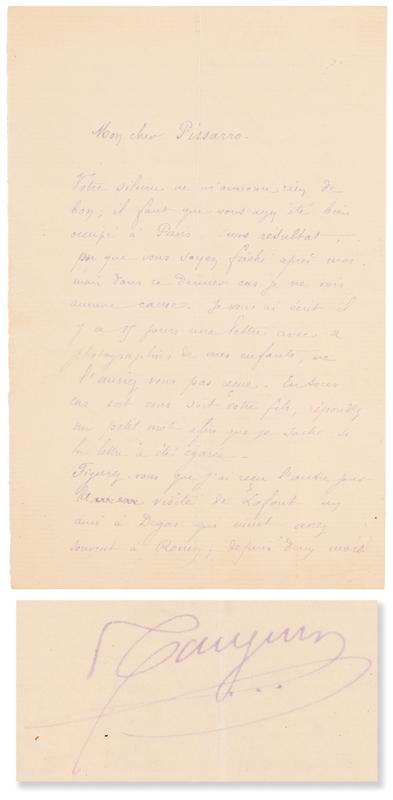 Mon cher Pissarro.
Votre silence ne m'annonce rien de
bon; il faut que vous ayez été bien
occupé à Paris sans resultat,
ou que vous soyez faché après moi
mais dans ce dernier cas je ne vois
aucune cause. Je vous ai écrit il
y a 15 jours une lettre avec 2
photographies de mes enfants, ne
l'auriez vous pas reçue. En tous
cas soit vous soit votre fils, répondez
un petit mot afin que je sache si
la lettre à été égarée -
Figurez vous que j'ai reçu l'autre jour
visite de Lafont un
ami à Degas qui vient assez
souvent à Rouen; depuis deux mois
Gauguin